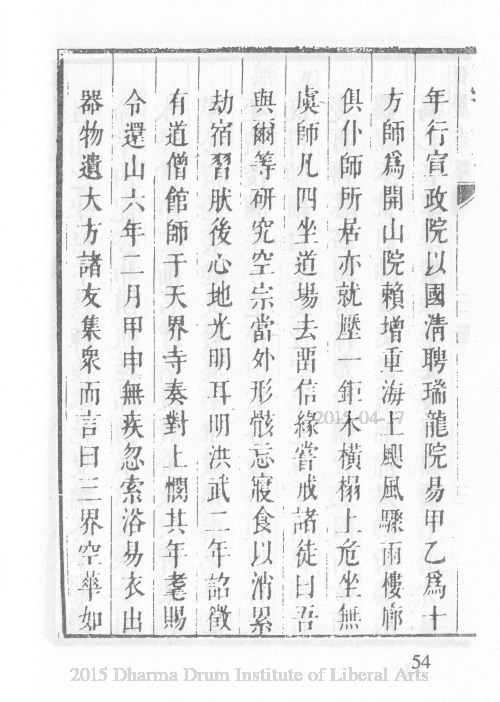 年行宣政院以國清聘瑞龍院易甲乙爲十
方師爲開山院賴增重海上颶風驟雨樓廊
俱仆師所居亦就壓一鉅木橫榻上危坐無
虞師凡四坐道場去畱信緣嘗戒諸徒曰吾
與爾等研究空宗當外形骸忘寢食以消累
劫宿習肰後心地光明耳明洪武二年詔徵
有道僧館師于天界寺奏對上憫其年耄賜
令還山六年二月甲申無疾忽索浴易衣出
器物遺大方諸友集衆而言曰三界空華如
2015-04-17
54
2015 Dharma Drum Institute of Liberal Arts